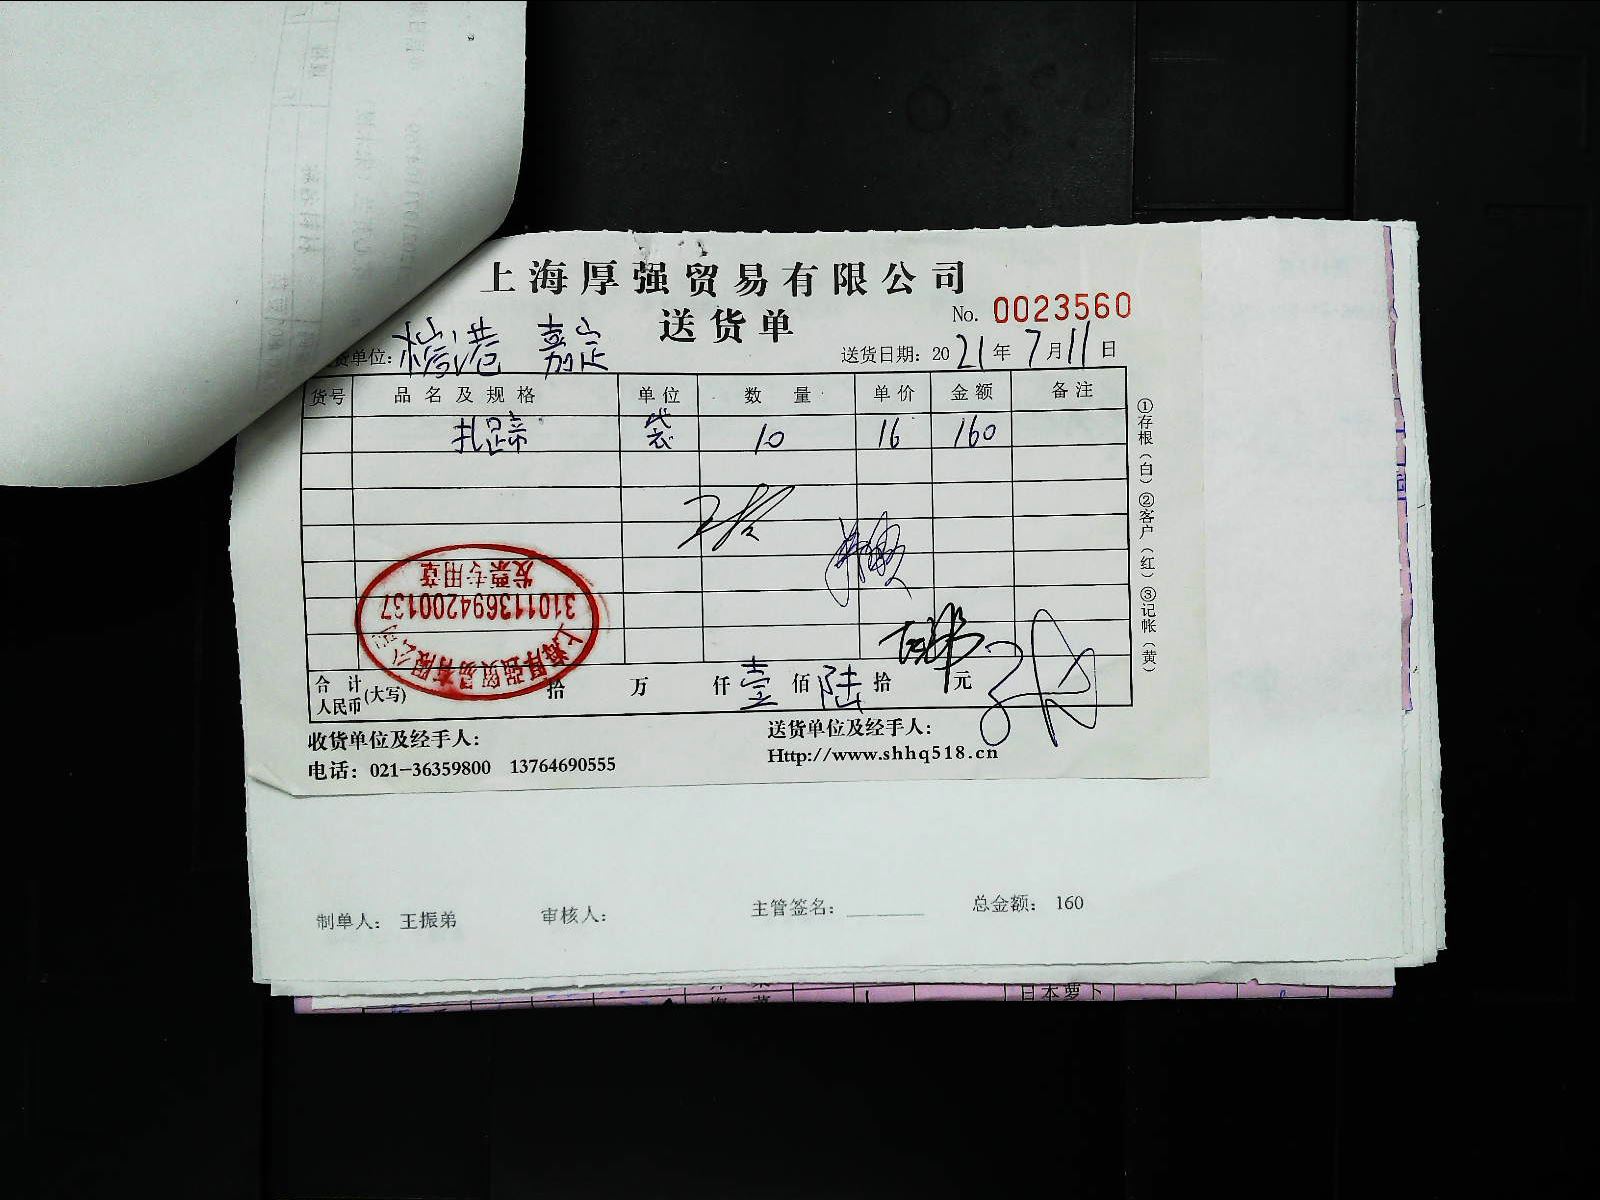 上海厚强贸易有限公司
送货单
No. 0023560
货单位: 港 嘉定
送货日期: 2021年7月11日
货号 品名及规格 单位 数量 单价 金额 备注
扎蹄 袋 10 16 160
①存根(白)②客户(红)③记帐(黄)
发票专用章
310113694200137
上海厚强贸易有限公司
合计人民币(大写) 拾 万 仟 壹佰 陆拾 元
收货单位及经手人:
送货单位及经手人:
电话: 021-36359800 13764690555
Http://www.shhq518.cn
制单人: 王振弟 审核人: 主管签名: 总金额: 160
日本萝卜